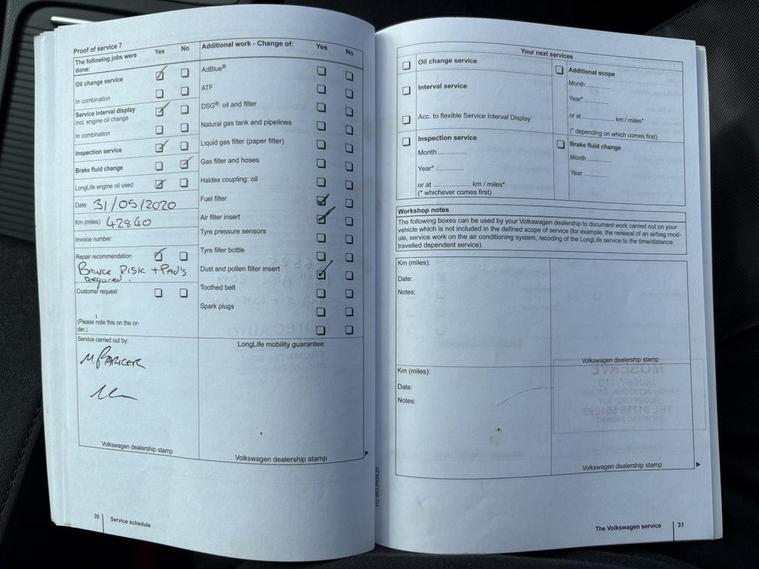 Proof of service 7
The following jobs were done:
Yes
No
Oil change service
In combination
Service Interval Display
incl. engine oil change
In combination
Inspection service
Brake fluid change
LongLife engine oil used
Date: 31/05/2020
Km (miles): 42840
Invoice number:
Repair recommendation
Brake Disk + Pad's
Required.
Customer request
(Please note this on the or-
der.)
Service carried out by:
M. PARKER
Volkswagen dealership stamp
Additional work - Change of:
Yes
No
AdBlue®
ATF
DSG®: oil and filter
Natural gas tank and pipelines
Liquid gas filter (paper filter)
Gas filter and hoses
Haldex coupling: oil
Fuel filter
Air filter insert
Tyre pressure sensors
Tyre filler bottle
Dust and pollen filter insert
Toothed belt
Spark plugs
LongLife mobility guarantee:
Volkswagen dealership stamp
30
Service schedule
Your next services
Oil change service
Interval service
Acc. to flexible Service Interval Display
Inspection service
Month ............
Year* ............
or at ............ km / miles*
(* whichever comes first)
Additional scope
Month ..........
Year* ..........
or at ............ km / miles*
(* depending on which comes first)
Brake fluid change
Month ..........
Year ..........
Workshop notes
The following boxes can be used by your Volkswagen dealership to document work carried out on your
vehicle which is not included in the defined scope of service (for example, the renewal of an airbag mod-
ule, service work on the air conditioning system, recoding of the LongLife service to the time/distance
travelled dependent service).
Km (miles):
Date:
Notes:
Volkswagen dealership stamp
Km (miles):
Date:
Notes:
Volkswagen dealership stamp
The Volkswagen service
31